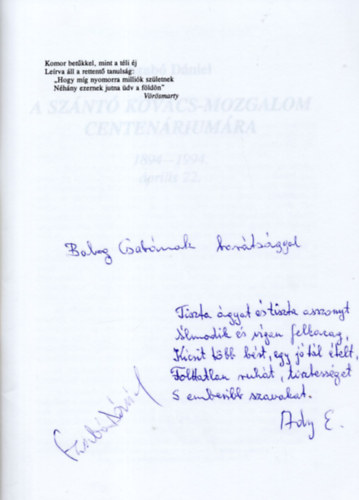 Komor betűkkel, mint a téli éj
Leírva áll a rettentő tanulság:
„Hogy míg nyomorra milliók születnek
Néhány ezernek jutna üdv a földön"
Vörösmarty
Szabó Dániel
A SZÁNTÓ KOVÁCS-MOZGALOM
CENTENÁRIUMÁRA
1894–1994
április 22.
Balog Csabának barátsággal
Tiszta ágyat és tiszta asszonyt
Álmodik és vígan felkacag,
Kicsit több bért, egy jó tál ételt,
Foltatlan ruhát, tisztességet
S emberibb szavakat.
Ady E.
Szabó Dániel